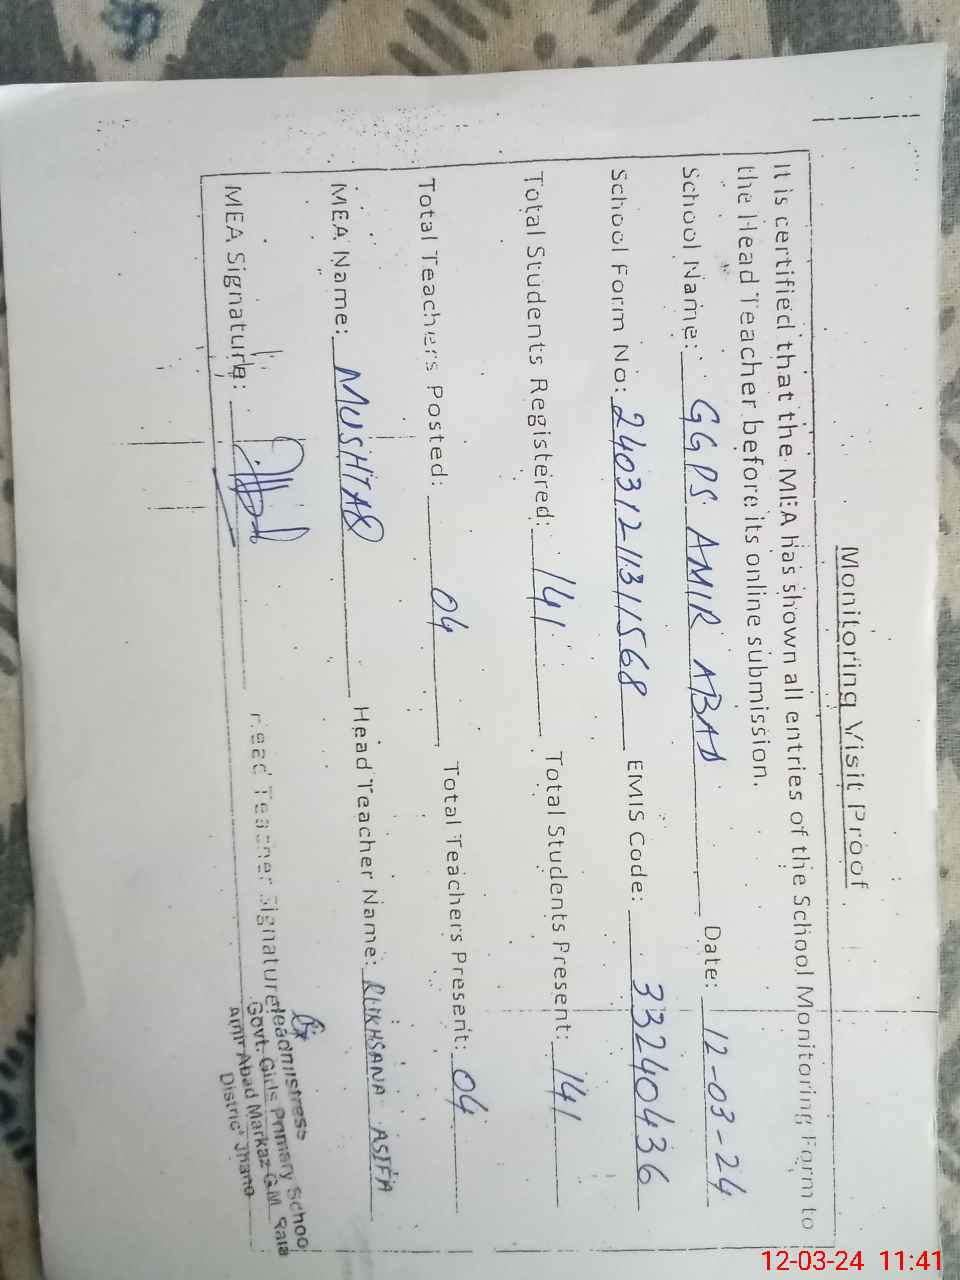 Monitoring Visit Proof
It is certified that the MEA has shown all entries of the School Monitoring Form to
the Head Teacher before its online submission.
School Name: GGPS AMIR ABAD Date: 12-03-24
School Form No: 24031211311568 EMIS Code: 33240436
Total Students Registered: 141 Total Students Present: 141
Total Teachers Posted: 04 Total Teachers Present: 04
MEA Name: MUSHTAQ Head Teacher Name: RUKHSANA ASIFA
MEA Signature: Head Teacher Signature:
Headmistress
Govt. Girls Primary Schoo
Amir Abad Markaz G.M.
District Jhang
12-03-24 11:41